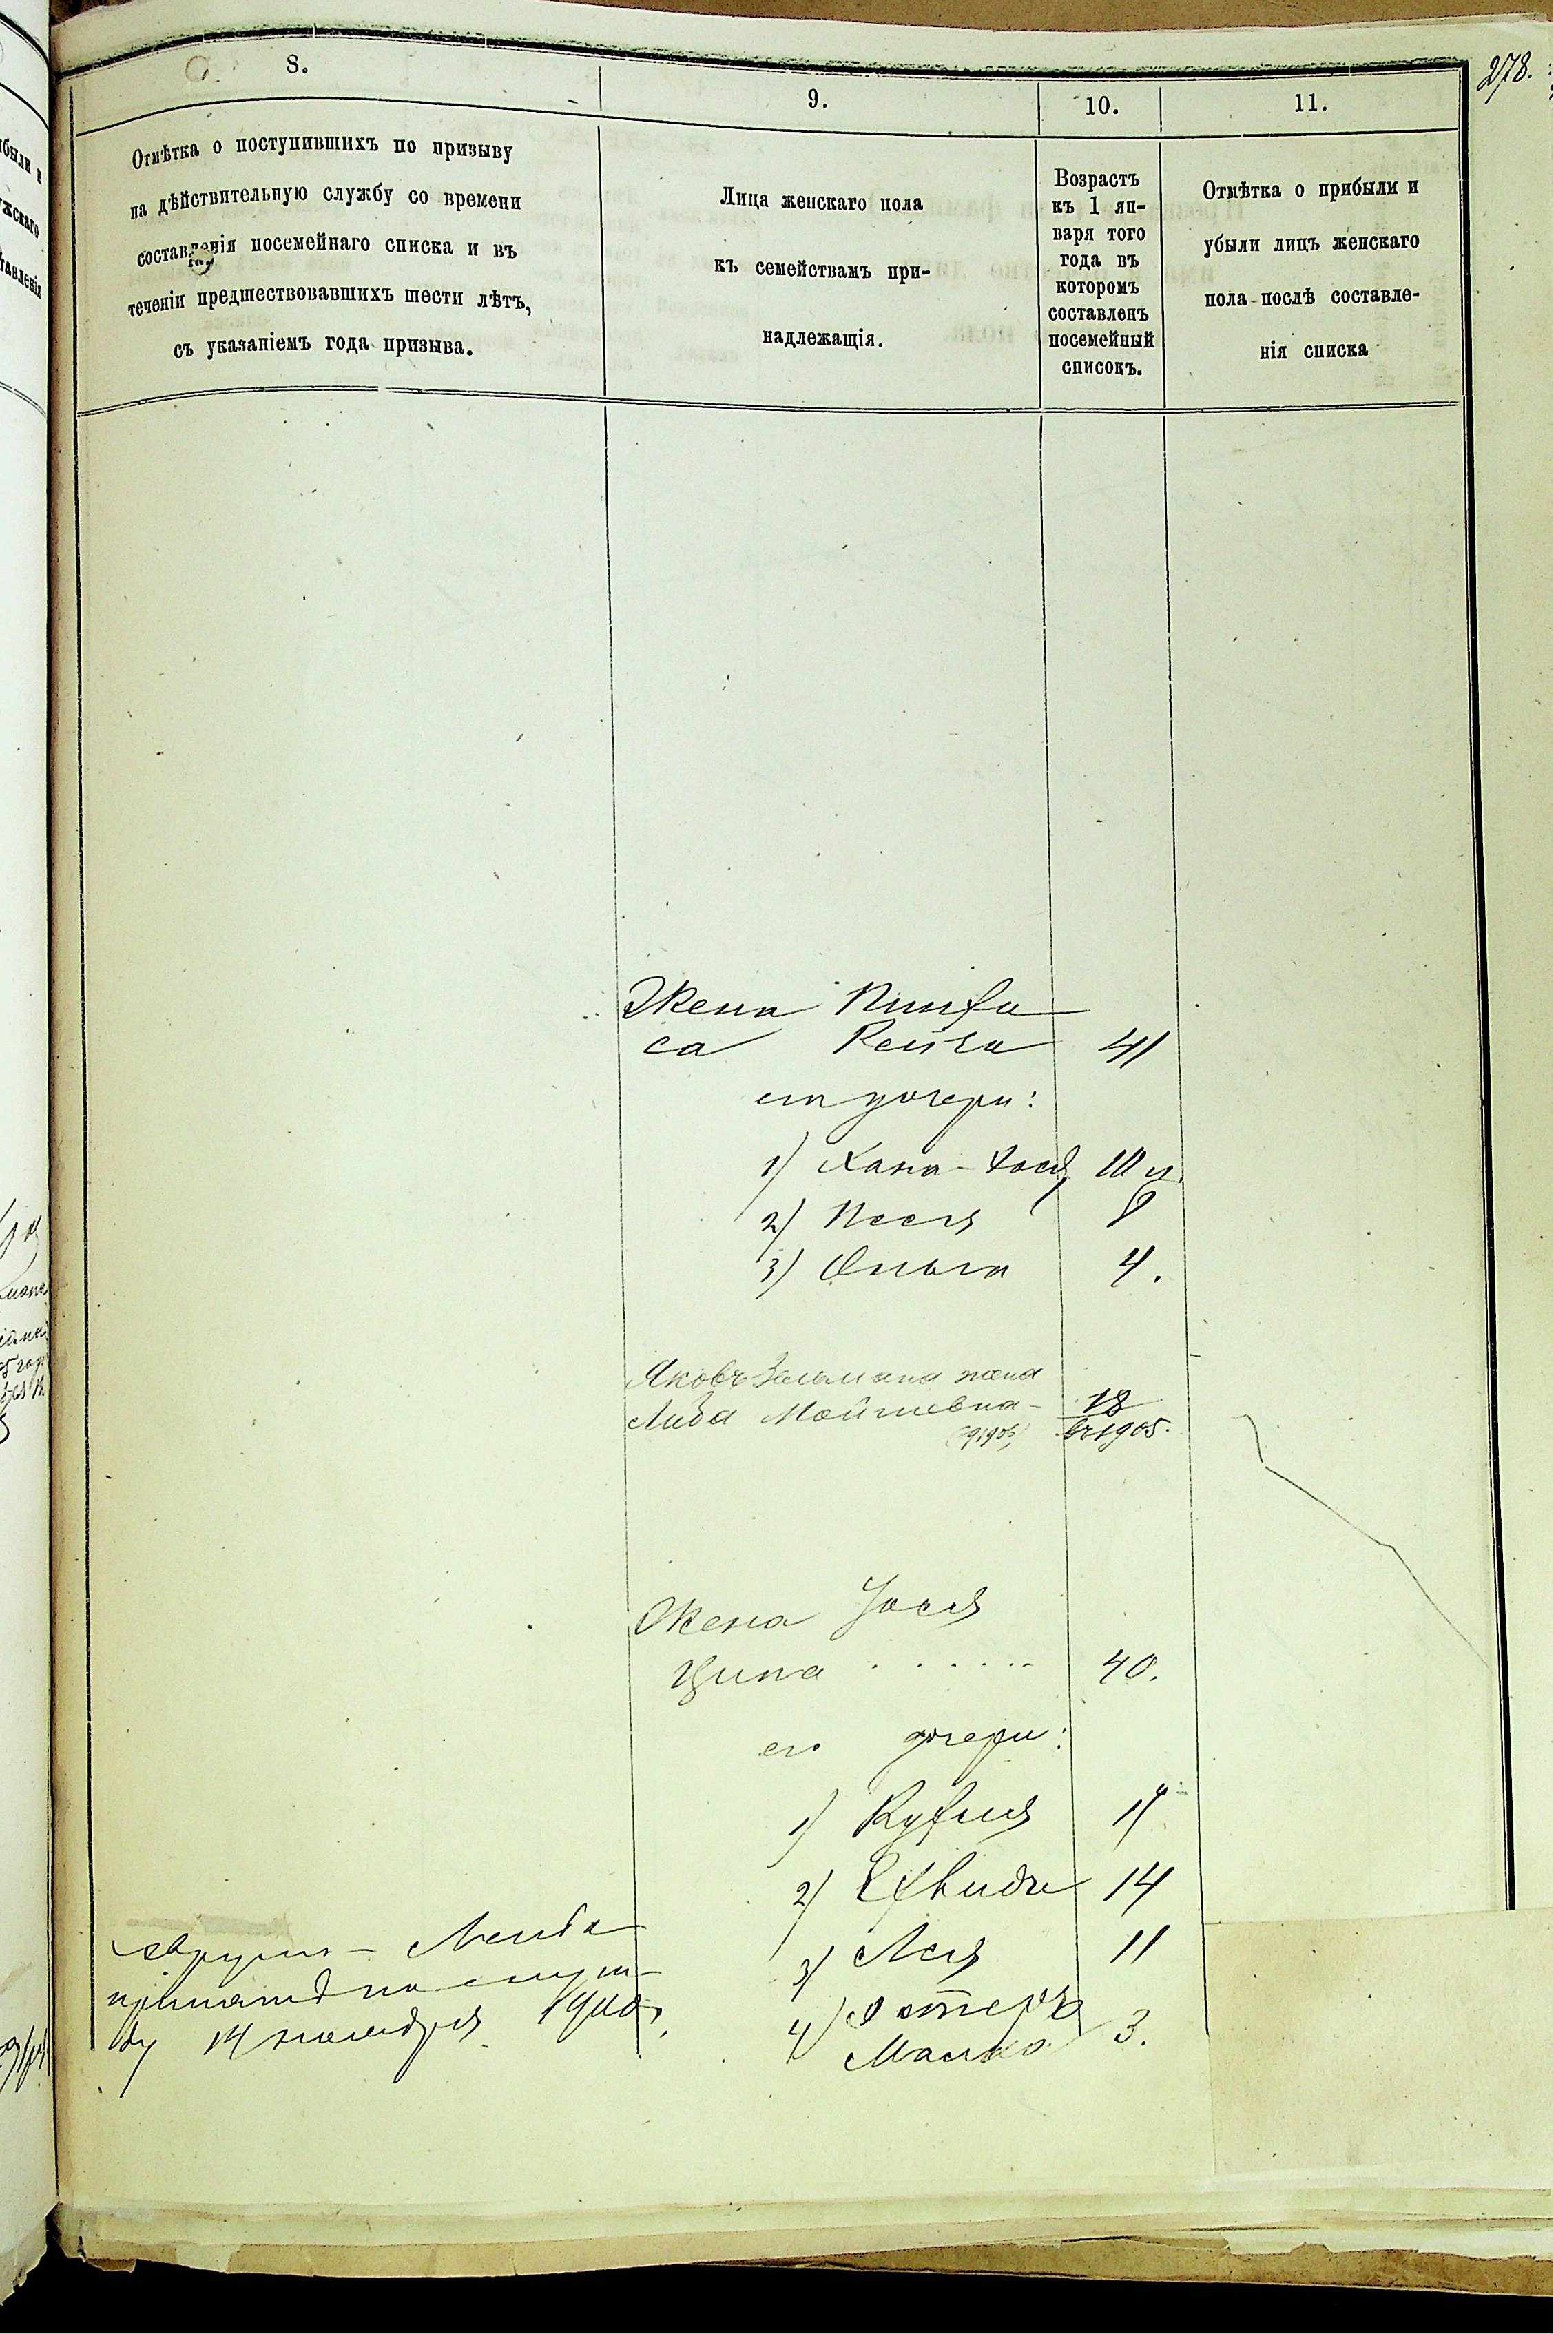 278.
8.
9.
10.
11.
Отмѣтка о поступившихъ по призыву
на дѣйствительную службу со времени
составленія посемейнаго списка и въ
теченіи предшествовавшихъ шести лѣтъ,
съ указаніемъ года призыва.
Лица женскаго пола
къ семействамъ при-
надлежащія.
Возрастъ
къ 1 ян-
варя того
года въ
которомъ
составленъ
посемейный
списокъ.
Отмѣтка о прибыли и
убыли лицъ женскаго
пола послѣ составле-
нія списка
Жена Пинха
са Рейза 41
его дочери:
1) Хана- 10
2) Песя 8
3) 4.
Яковъ Зельмана жена
Либа Мойшевна- 18
въ 1905.
Жена Іосея
Ципа . . . . . . 40.
его дочери:
1) Рухля
2) 14
3) Лея 11
4) Эстеръ
Малка 3.
Лейба
принятъ на служ-
бу 14 ноября 1900,